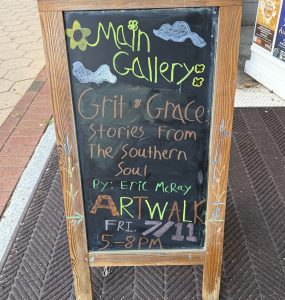 Main
Gallery
Grit & Grace
Stories From
The Southern
Soul
By: Eric McRay
ARTWALK
FRI. 7/11
5-8PM